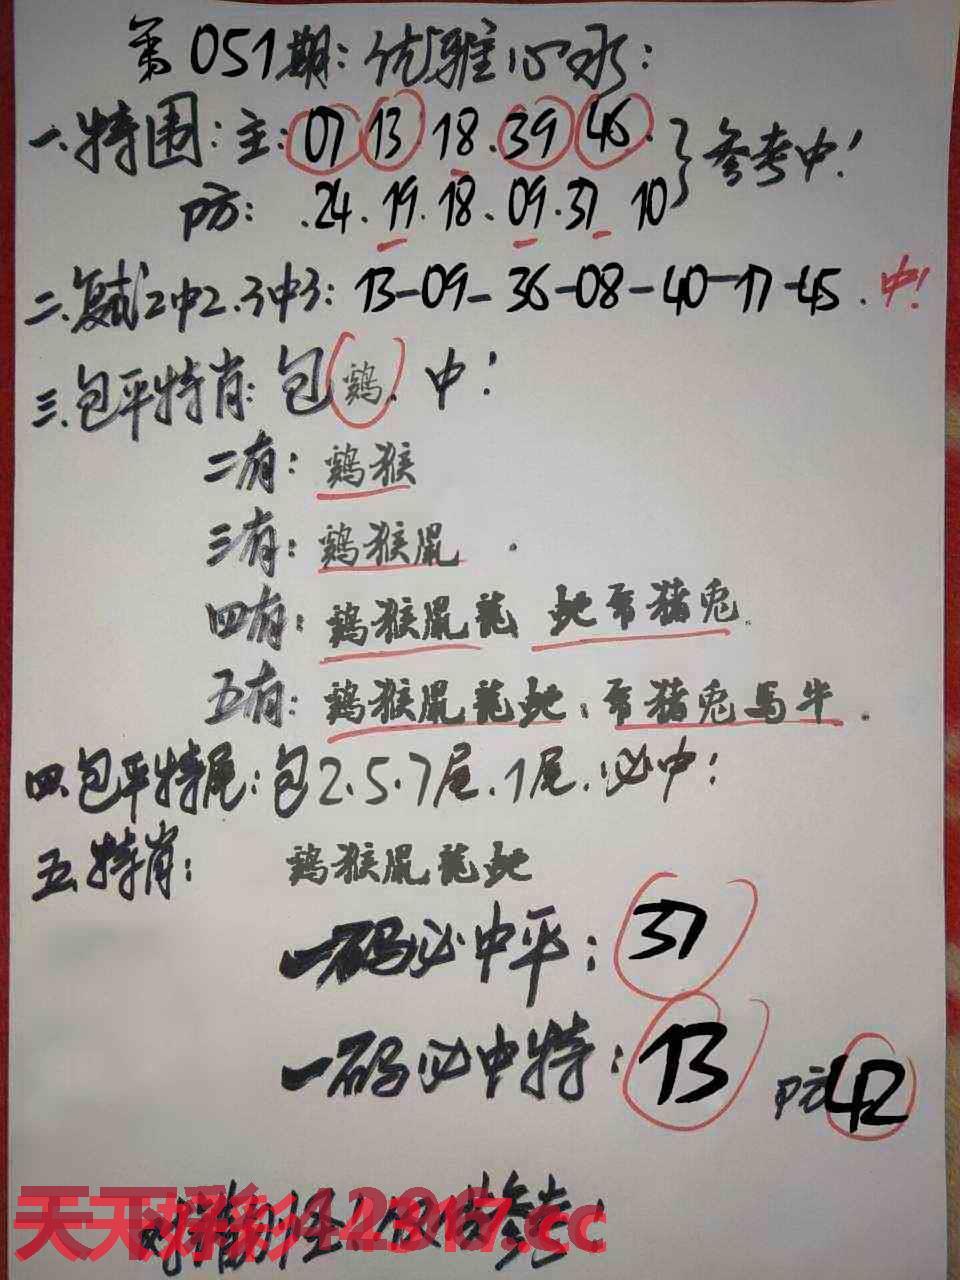 第051期:优雅心水:
一.特围:主:07 13 18.39 46.}参考中!
防: .24.19.18.09.37 10
二.复试2中2.3中3: 13-09-36-08-40-17-45.中!
三.包平特肖:包鸡.中!
二有:鸡猴
三有:鸡猴鼠.
四有:鸡猴鼠龍 蛇 猪兔.
五有:鸡猴鼠龍蛇: 猪兔馬牛.
四.包平特尾:包2.5.7尾.1尾.必中!
五.特肖: 鸡猴鼠龍蛇
一码必中平:37
一码必中特:13 防42
天天 彩 .cc